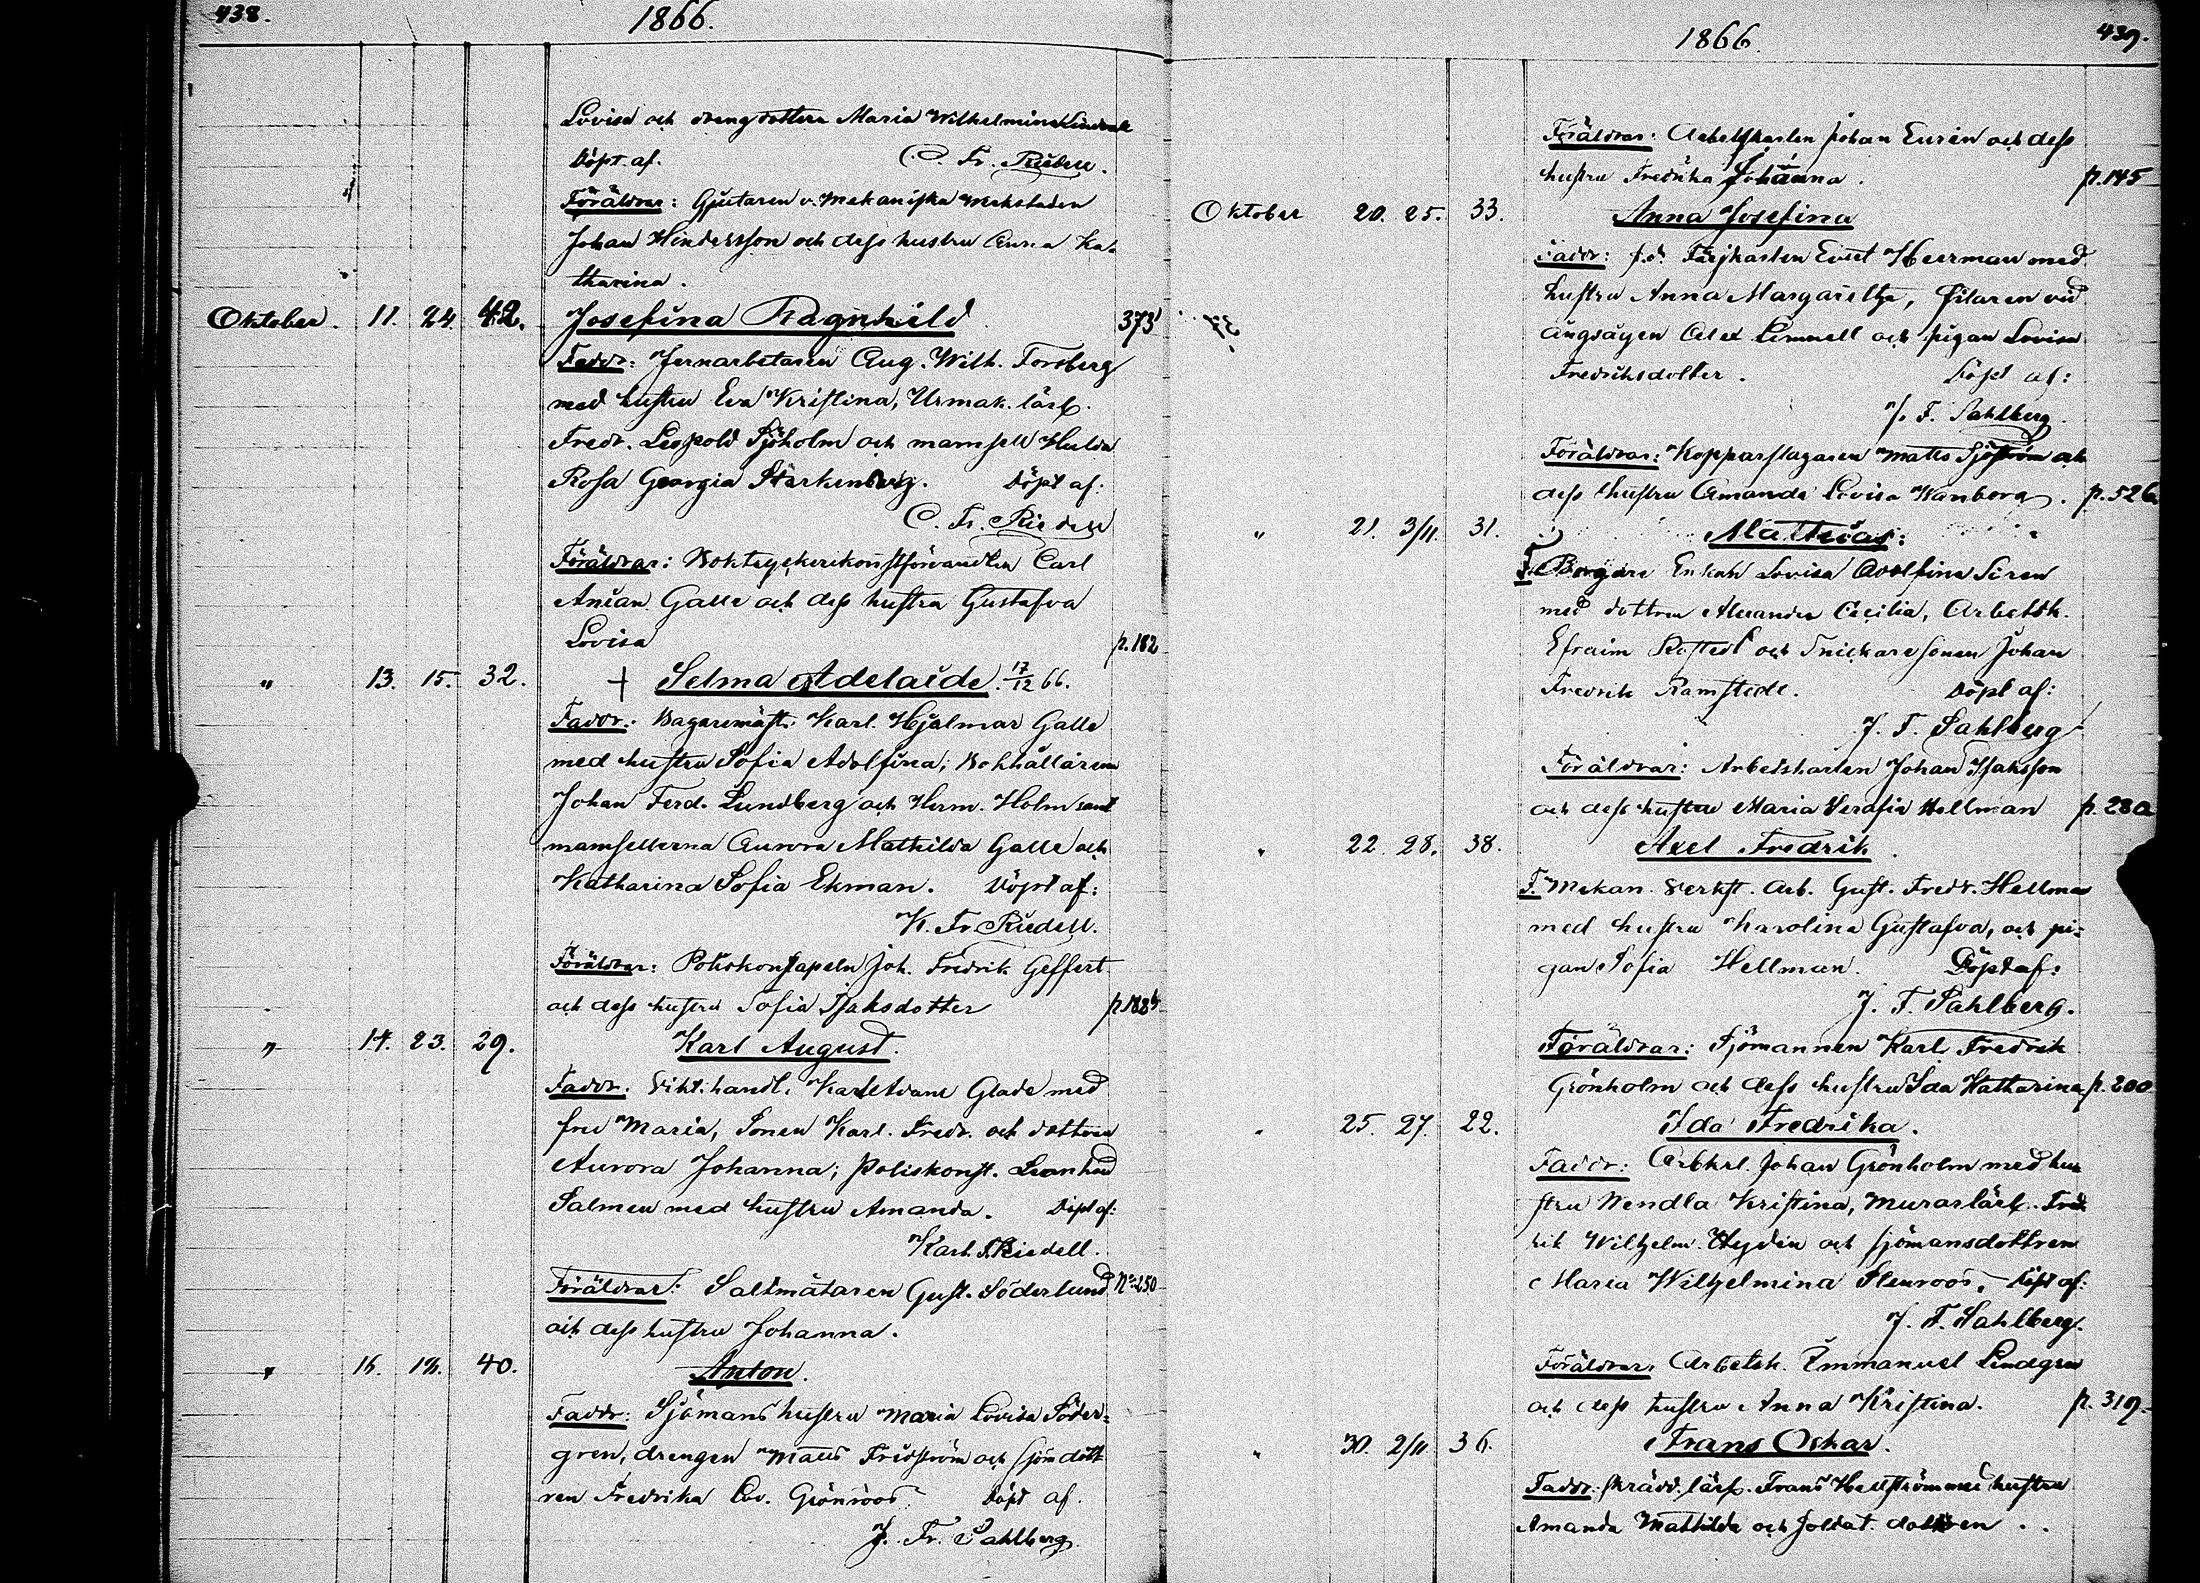 438.
1866.
Lovisa och drengdottern Maria Wilhelmina
Döpt af. C. Fr. Riedell.
Föräldrar: Gjutaren v. Mekaniska Werkstaden
Johan Hindersson och dess hustru Anna Ka-
tharina.
Oktober. 11. 24. 42. Josefina Ragnhild 373
Faddr: Jernarbetaren Aug. Wilh. Forsberg
med hustru Eva Kristina, Urmak. lärl.
Fredr. Leopold Sjöholm och mamsell Hulda
Rosa Georgia Starkenberg. Döpt af:
C. Fr. Riedell
Föräldrar: Boktryckerikonstförvandten Carl
Anian Galle och dess hustru Gustafva
Lovisa p. 182
" 13. 15. 32. + Selma Adelaide. 17/12 66.
Faddr: Bagaremäst. Karl Hjalmar Galle
med hustru Sofia Adolfina; Bokhållarene
Johan Ferd. Lundberg och Herm. Holm samt
mamsellerna Aurora Mathilda Galle och
Katharina Sofia Ekman. Döpt af:
K. Fr. Riedell.
Föräldrar: Poliskonstapeln Joh. Fredrik Geffert
och dess hustru Sofia Isaksdotter p. 188b
" 14. 23. 29. Karl August.
Faddr: Vikt. handl. Karl Edvard Glade med
fru Maria, Sonen Karl Fredr. och dottren
Aurora Johanna; Poliskonst. Leonhard
Salmen med hustru Amanda. Döpt af:
Karl F. Riedell.
Föräldrar: Saltmätaren Gust. Söderlund No 250
och dess hustru Johanna.
" 16. 18. 40. Anton.
Faddr: Sjömans hustru Maria Lovisa Söder-
gren, drengen Matts Fridström och sjöm.dott-
ren Fredrika Lov. Grönroos. Döpt af.
J. Fr. Sahlberg.
439.
1866.
Föräldrar: Arbetskarlen Johan Euren och dess
hustru Fredrika Johanna. p. 145
Oktober 20. 25. 33. Anna Josefina
Faddr: f.d. Färjkarlen Evert Heerman med
hustru Anna Margaretha, Filaren vid
ångsågen Alex Limnell och pigan Lovisa
Fredriksdotter. Döpt af:
J. F. Sahlberg
Föräldrar: Kopparslagaren Matts Sjöström och
dess hustru Amanda Lovisa Wanborg. p. 526
" 21. 3/11. 31. Mathias:
F. Borgare Enkan Lovisa Adolfina Siren
med dottren Alexandra Cecilia, Arbetsk.
Efraim Rostedt och Snickaresonen Johan
Fredrik Ramstedt. Döpt af:
J. F. Sahlberg
Föräldrar: Arbetskarlen Johan Isaksson
och dess hustru Maria Serafia Hellman p. 280
" 22. 28. 38. Axel Fredrik.
F. Mekan. Verkst. Arb. Gust. Fredr. Hellman
med hustru Karolina Gustafva, och pi-
gan Sofia Hellman. Döpt af:
J. F. Sahlberg.
Föräldrar: Sjömannen Karl Fredrik
Grönholm och dess hustru Ida Katharina p. 200
" 25. 27. 22. Ida Fredrika.
Faddr: Arbkrl. Johan Grönholm med hu-
stru Wendla Kristina, Murarlärl. Fred-
rik Wilhelm Heyden och sjömansdottren
Maria Wilhelmina Stenroos. Döpt af:
J. F. Sahlberg.
Föräldrar: Arbetsk. Emmanuel Lindgren
och dess hustru Anna Kristina. p. 319.
" 30. 2/11 36. Frans Oskar.
Faddr: Skrädd. lärl. Frans Hellström med hustru
Amanda Mathilda och Soldat. dottren